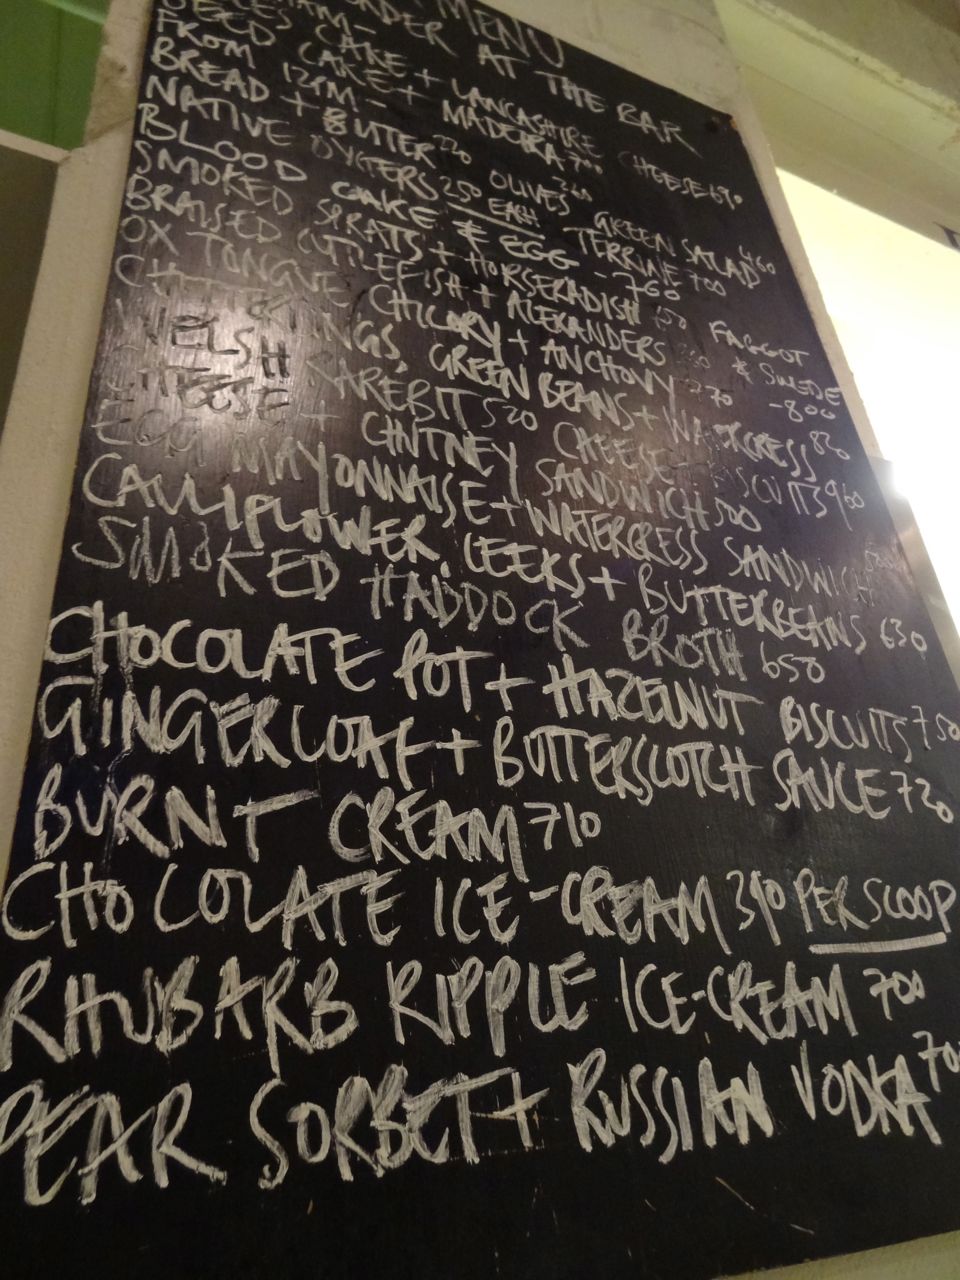 MENU
ORDER AT THE BAR
CAKE + LANCASHIRE CHEESE 690
FROM CAKE + MADEIRA 700
BREAD + BUTTER 220 OLIVES 360 GREEN SALAD 460
NATIVE OYSTERS 250 EACH TERRINE 700
BLOOD CAKE & EGG - 760
SMOKED SPRATS + HORSERADISH 650 FAGGOT & SWEDE - 800
BRAISED CUTTLEFISH + ALEXANDERS
OX TONGUE CHICORY + ANCHOVY 770
CHITTERLINGS, GREEN BEANS + WATERCRESS
WELSH RAREBIT 520 CHEESE + BISCUITS 960
CHEESE + CHTNEY SANDWICH 500
EGG MAYONNAISE + WATERCRESS SANDWICH
CAULIFLOWER, LEEKS + BUTTERBEANS 630
SMOKED HADDOCK BROTH 650
CHOCOLATE POT + HAZELNUT BISCUITS 750
GINGERLOAF + BUTTERSCOTCH SAUCE 720
BURNT CREAM 710
CHOCOLATE ICE-CREAM 390 PER SCOOP
RHUBARB RIPPLE ICE-CREAM 700
PEAR SORBET + RUSSIAN VODKA 700